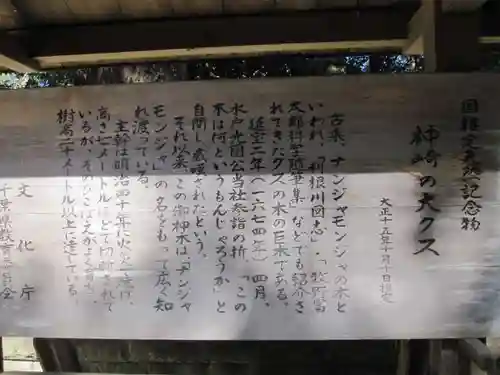 国指定天然記念物
神崎の大クス
大正十五年十月十日指定
古来、ナンジャモンジャの木と
いわれ、「利根川図志」
などでも紹介さ
れてきたクスの木の巨木である。
延宝二年(一六七四年)四月、
水戸光圀公当社参詣の折、「この
木は何というもんじゃろうか」と
自問し感嘆されたという。
それ以来、この御神木は「ナンジャ
モンジャ」の名をもって広く知
れ渡っている。
主幹は明治四十年
高さ七メートル
いるが、そのひこばえが
樹高二十メートル以上に達している。
文化庁
千葉県教育委員会